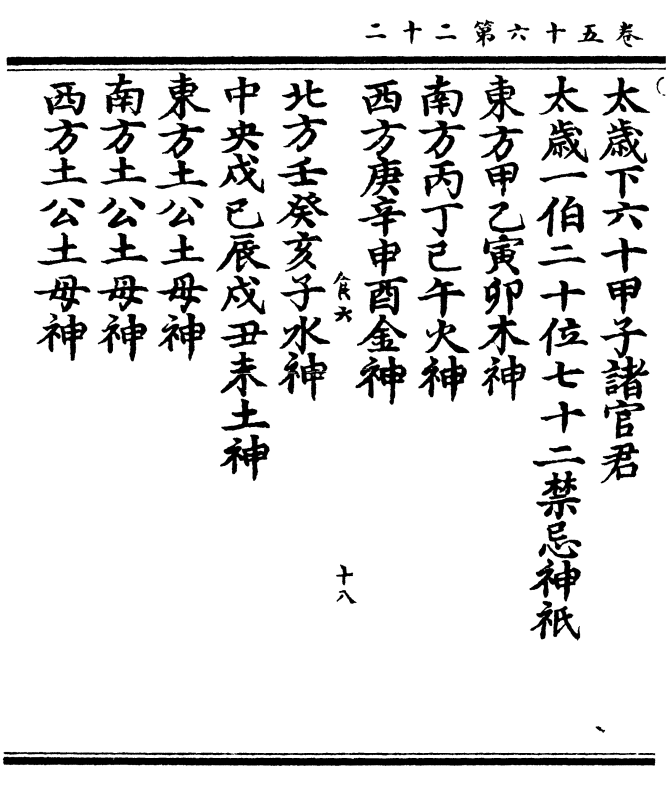 卷五十六第二十二
太歲下六十甲子諸官君
太歲一伯二十位七十二禁忌神祇
東方甲乙寅卯木神
南方丙丁巳午火神
西方庚辛申酉金神
食六
十八
北方壬癸亥子水神
中央戊己辰戌丑未土神
東方土公土母神
南方土公土母神
西方土公土母神